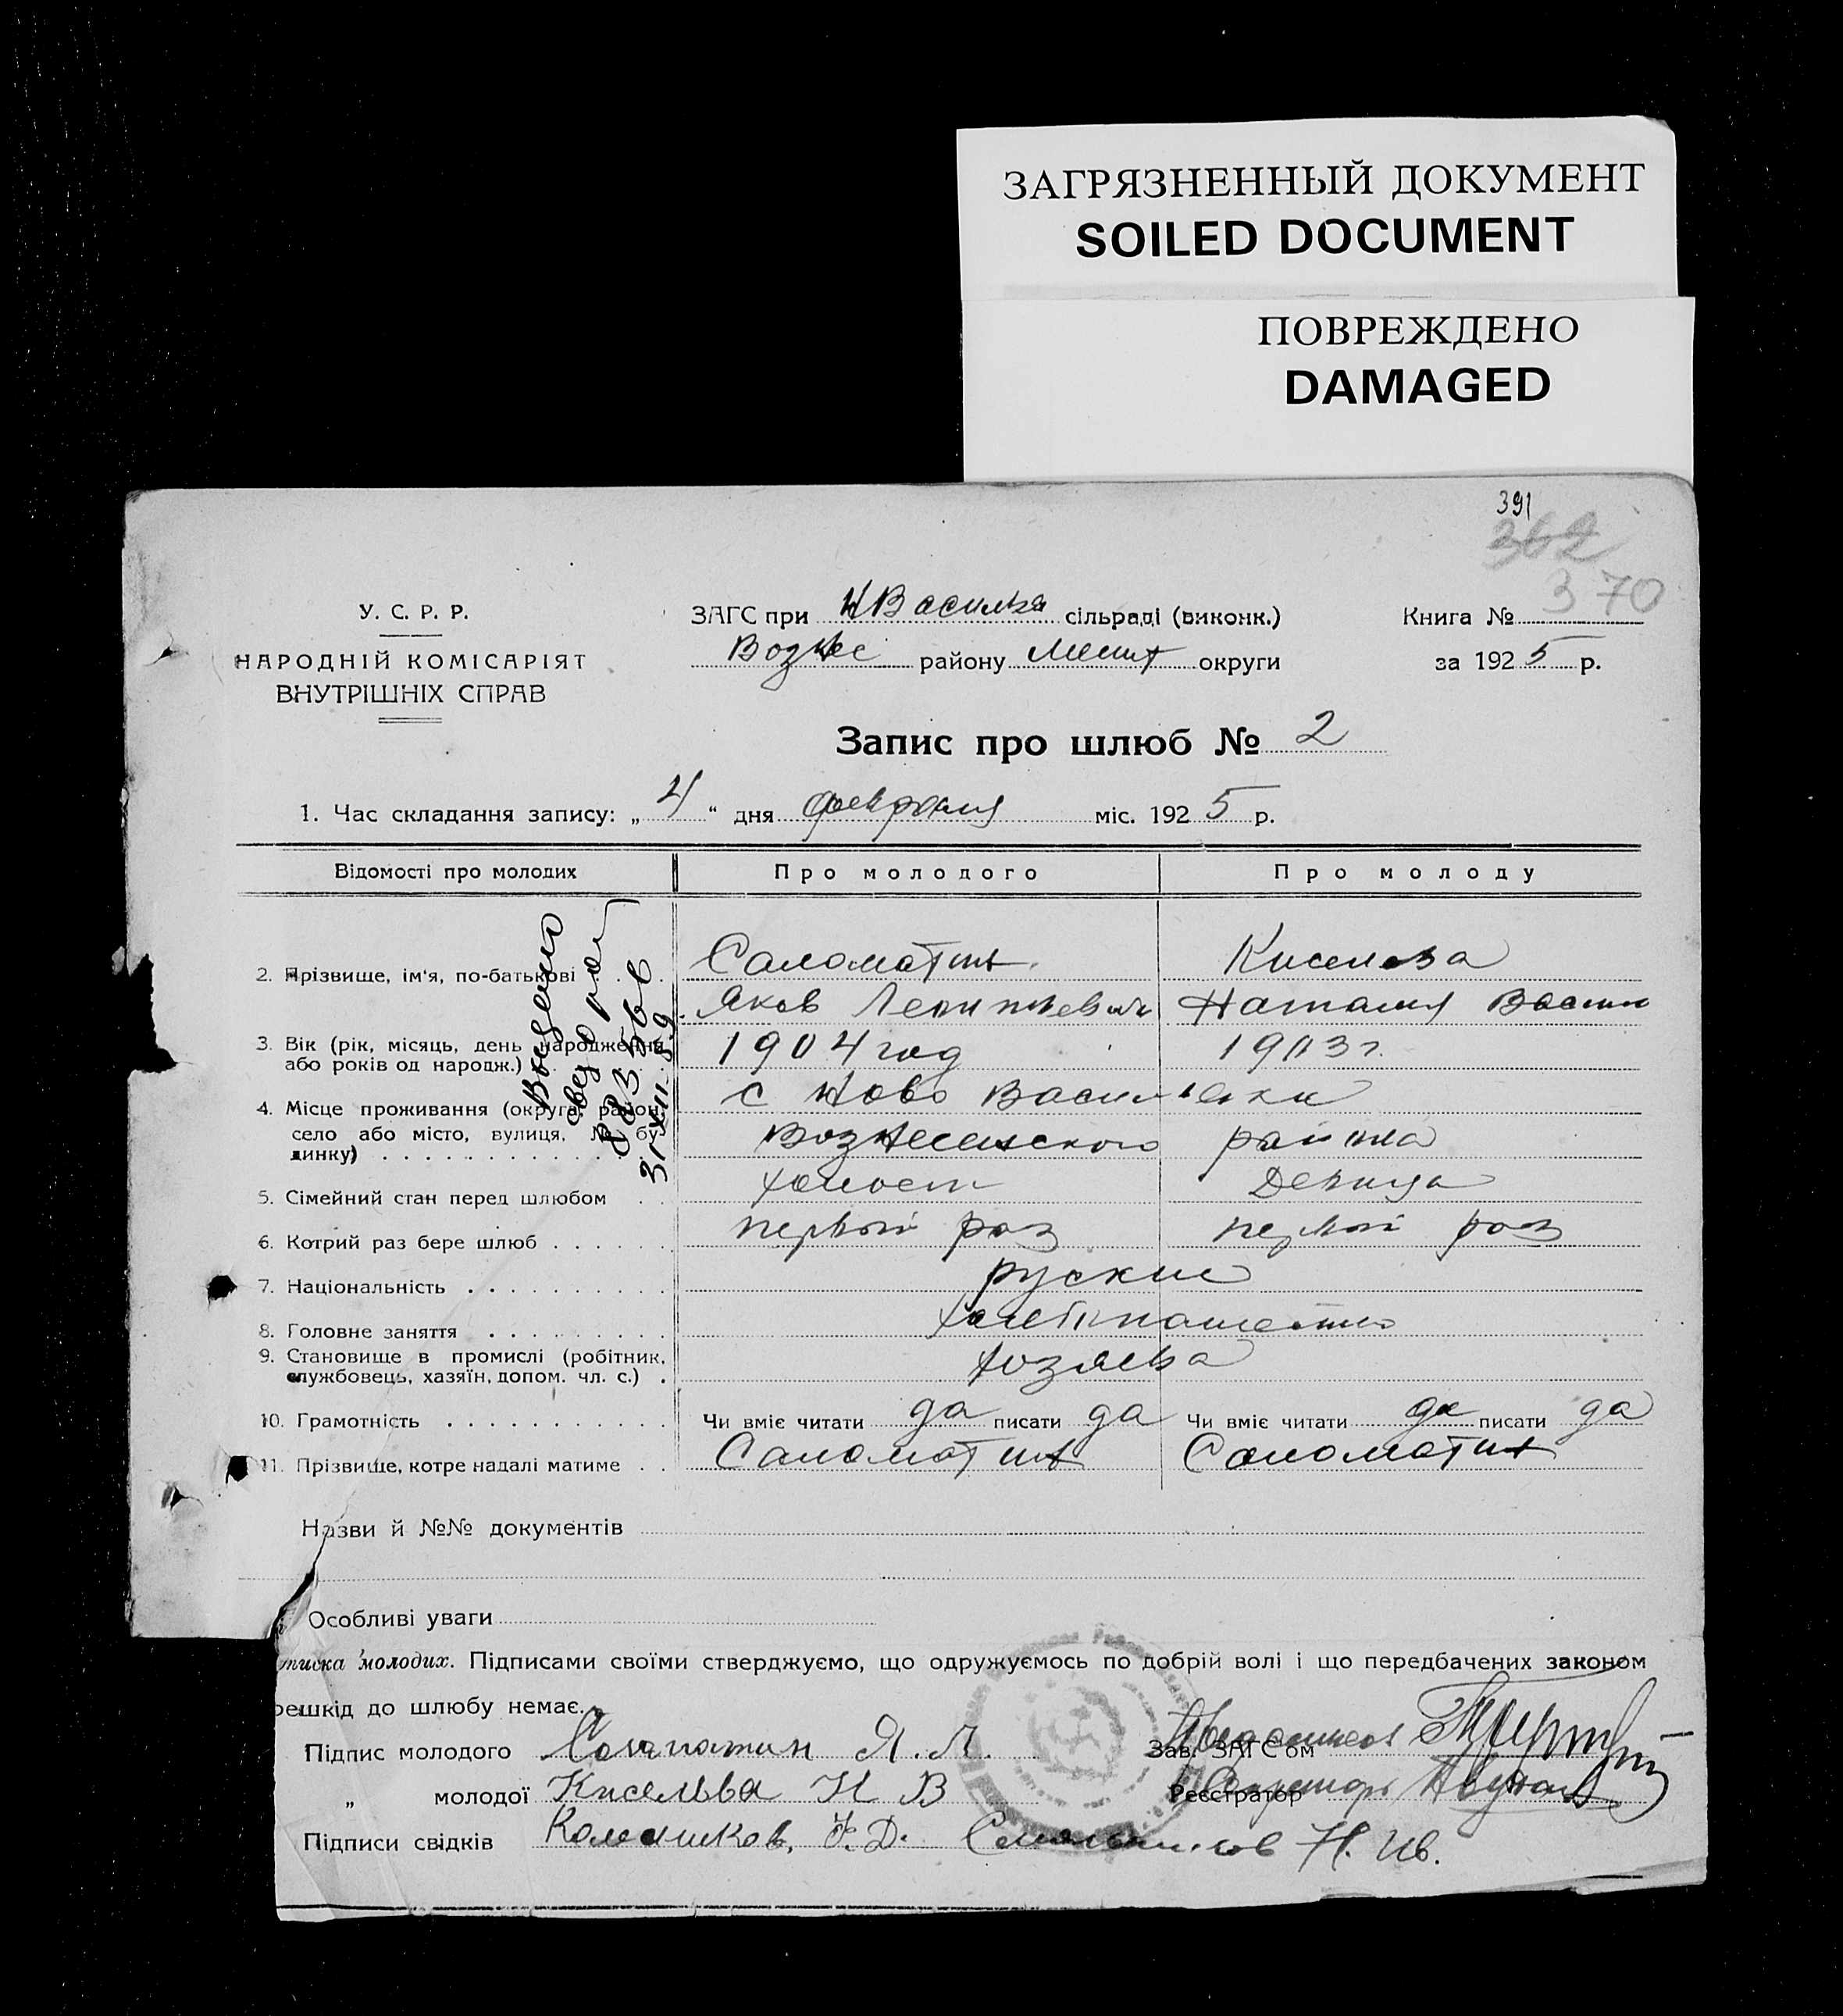 ЗАГРЯЗНЕННЫЙ ДОКУМЕНТ
SOILED DOCUMENT
ПОВРЕЖДЕНО
DAMAGED
391
362
370
У. С. Р. Р.
НАРОДНІЙ КОМІСАРІЯТ
ВНУТРІШНІХ СПРАВ
ЗАГС при НВасилька сільраді (виконк.)
Вознес району Мелит округи
Книга №
за 1925 р.
Запис про шлюб № 2
1. Час складання запису: „ 4 “ дня февраля міс. 1925 р.
Відомості про молодих Про молодого Про молоду
Видано
свед о рож
883566
31 XII 59
2. Прізвище, ім'я, по-батькові Саломатин Киселева
Яков Леонтьевич Наталия Васил
3. Вік (рік, місяць, день народження 1904 год 1903 г.
або років од народж.)
4. Місце проживання (округа, район, с Ново Васильевки
село або місто, вулиця, № бу- Вознесенского района
динку)
5. Сімейний стан перед шлюбом холост Девица
6. Котрий раз бере шлюб первый раз первый раз
7. Національність руские
8. Головне заняття хлебопашество
9. Становище в промислі (робітник, хозяева
службовець, хазяїн, допом. чл. с.)
10. Грамотність Чи вміє читати да писати да Чи вміє читати да писати да
11. Прізвище, котре надалі матиме Саломатин Саломатин
Назви й №№ документів
Особливі уваги
писка молодих. Підписами своїми стверджуємо, що одружуємось по добрій волі і що передбачених законом
решкід до шлюбу немає.
Підпис молодого Соломатин Я. Л. Зав. ЗАГС'ом
„ молодої Кисельва Н В Реєстратор Секретарь
Підписи свідків